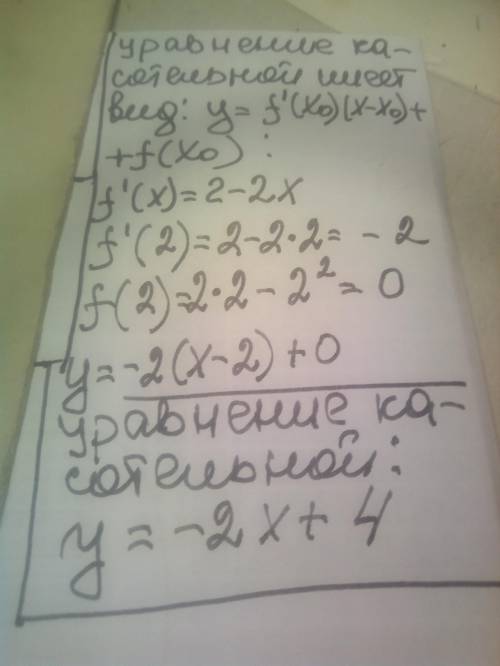 уравнение ка-
сательной имеет
вид: y = f'(x₀)(x-x₀)+
+f(x₀) :
f'(x)=2-2x
f'(2)=2-2•2= -2
f(2)=2•2-2²=0
y=-2(x-2)+0
уравнение ка-
сательной:
y = -2x+4